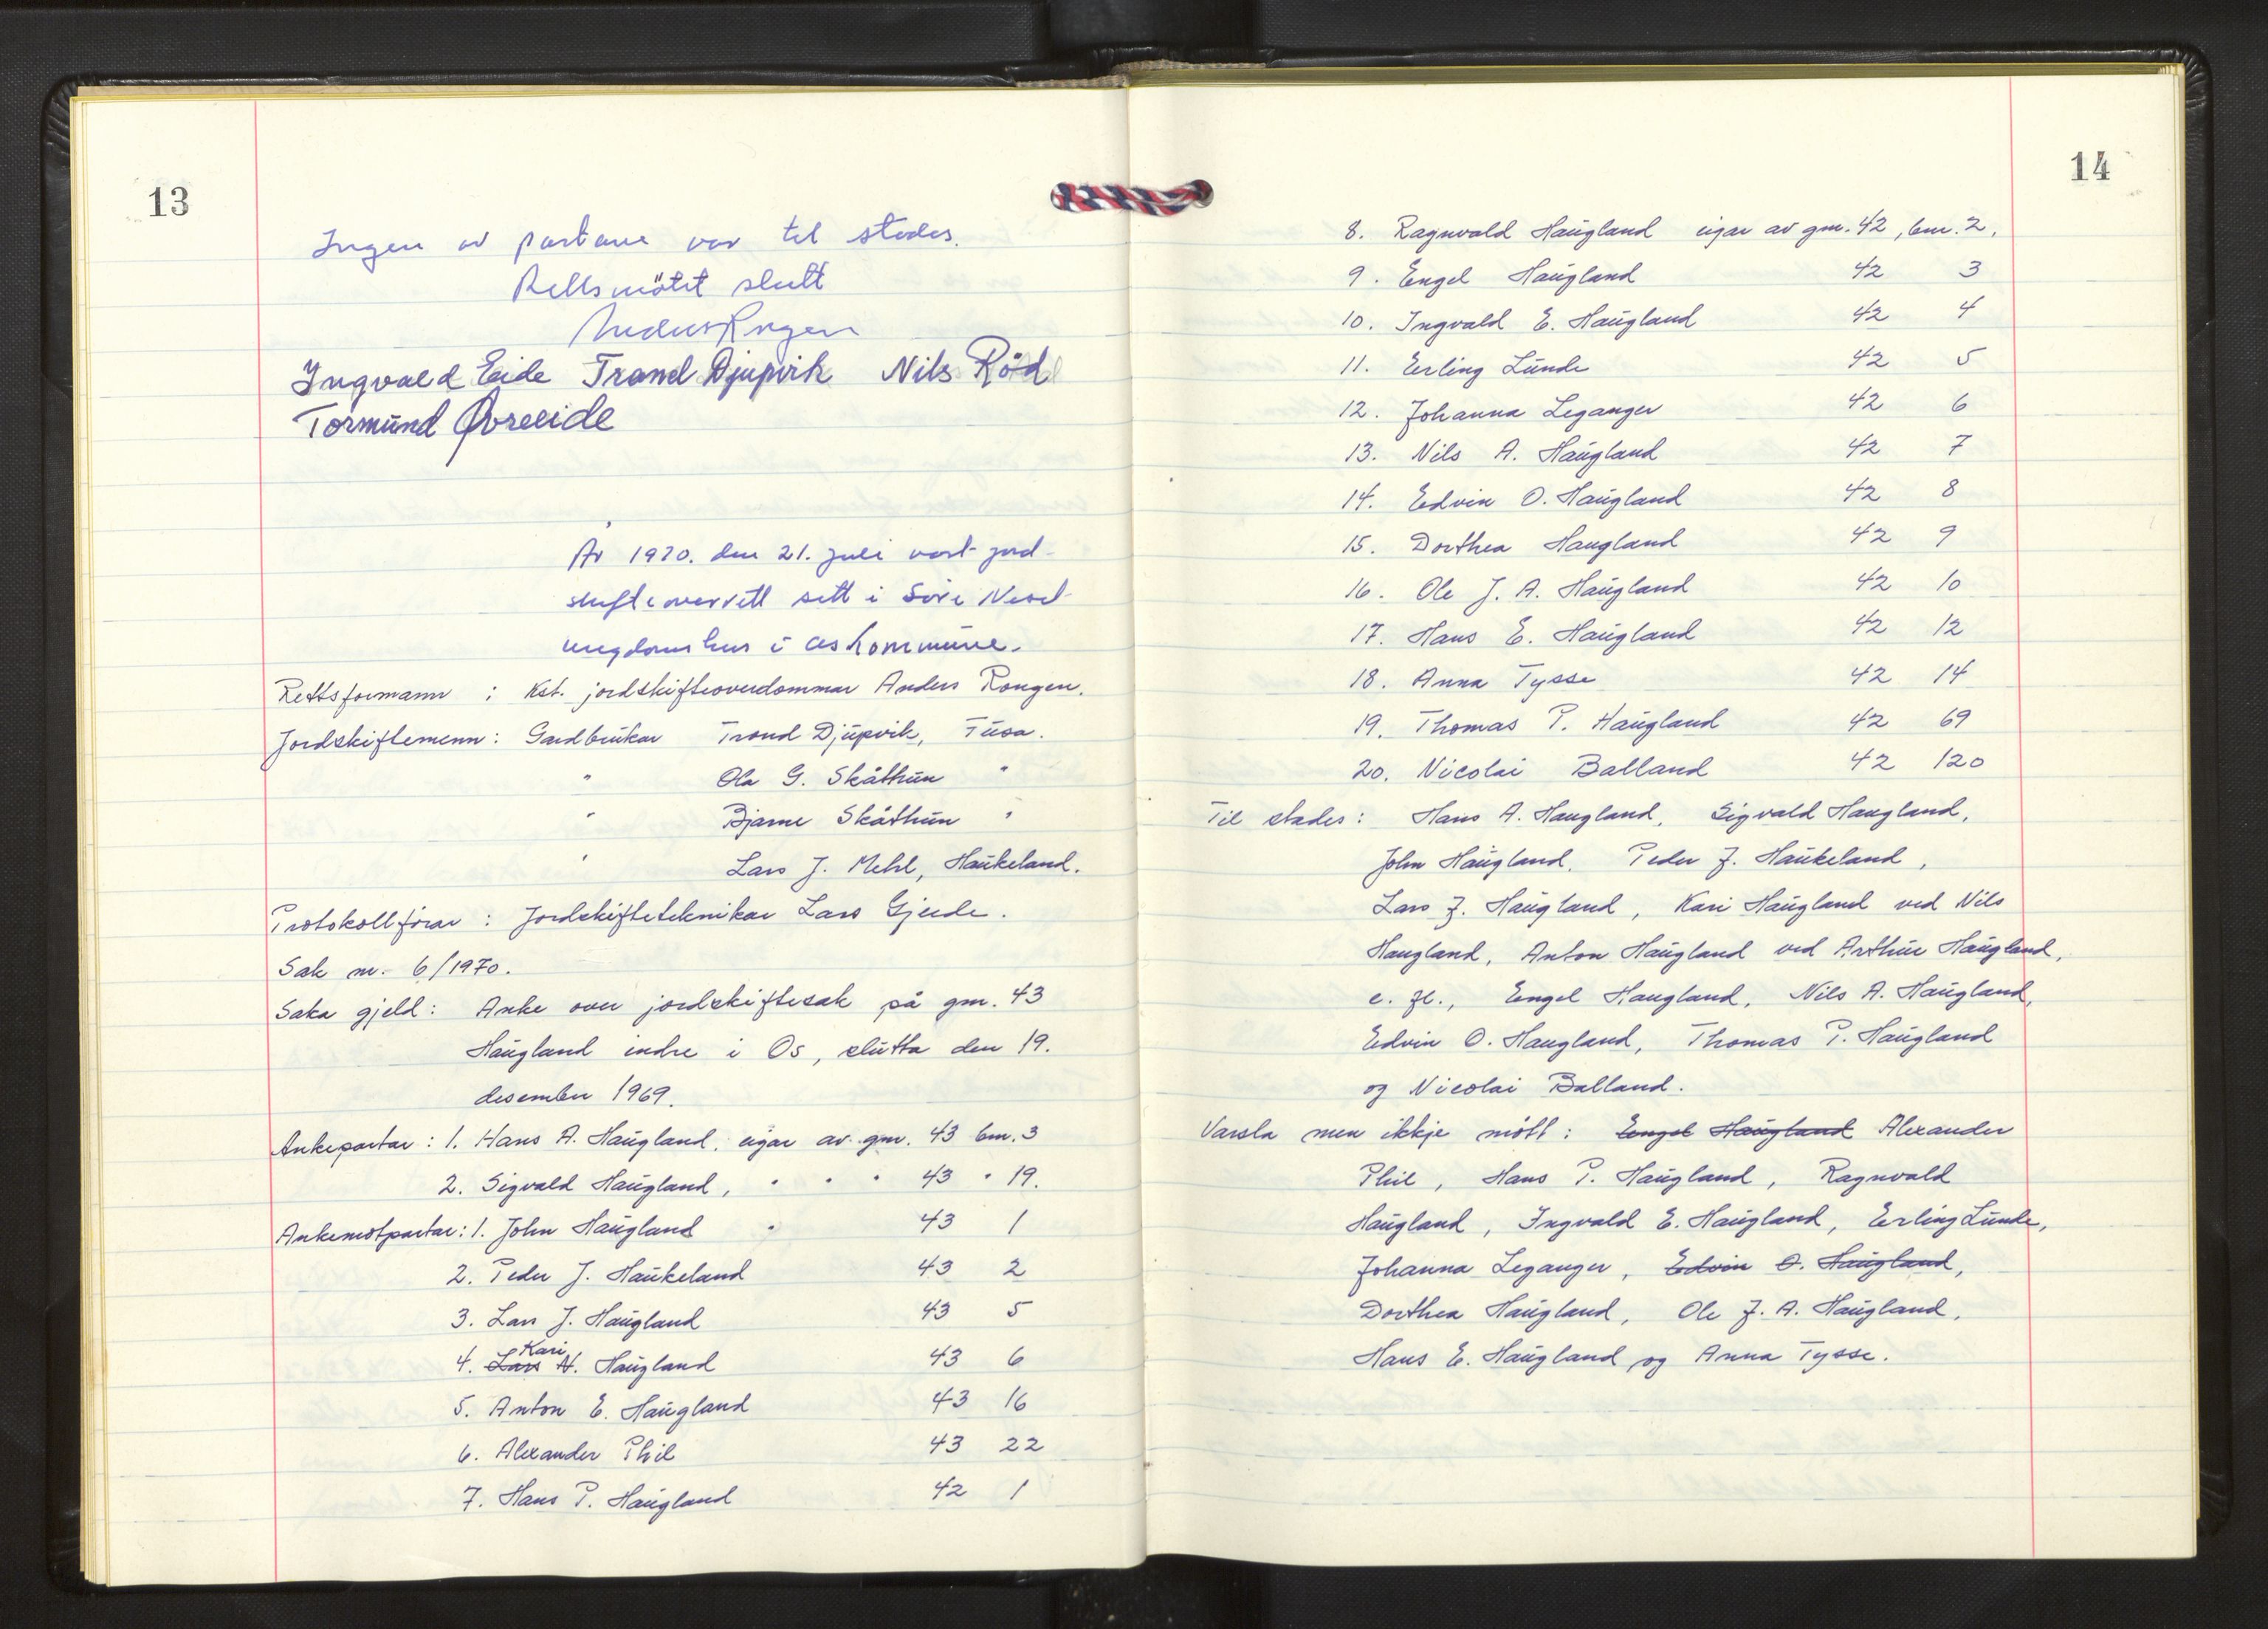 13
Ingen av partane var til stades.
Rettsmötet slutt
Anders Rongen
Ingvald Eide Trond Djupvik Nils Röd
Tormund Øvreeide
År 1970. den 21. juli vart jord-
skifteoverrett sett i Söre Neset
ungdomshus i Os kommune.
Rettsformann : Kst. jordskifteoverdommar Anders Rongen.
Jordskiftemenn : Gardbrukar Trond Djupvik, Fusa.
" Ola G. Skåthun "
" Bjarne Skåthun "
" Lars J. Mehl, Haukeland.
Protokollförar : Jordskifteteknikar Lars Gjerde.
Sak nr. 6/1970.
Saka gjeld : Anke over jordskiftesak på gnr. 43
Haugland indre i Os, slutta den 19.
desember 1969.
Ankepartar : 1. Hans A. Haugland, eigar av gnr. 43 bnr. 3
2. Sigvald Haugland, " " " 43 " 19.
Ankemotpartar : 1. John Haugland " 43 1
2. Peder J. Haukeland 43 2
3. Lars J. Haugland 43 5
Kari
4. Lars N. Haugland 43 6
5. Anton E. Haugland 43 16
6. Alexander Phil 43 22
7. Hans P. Haugland 42 1
14
8. Ragnvald Haugland eigar av gnr. 42, bnr. 2,
9. Engel Haugland 42 3
10. Ingvald E. Haugland 42 4
11. Erling Lunde 42 5
12. Johanna Leganger 42 6
13. Nils A. Haugland 42 7
14. Edvin O. Haugland 42 8
15. Dorthea Haugland 42 9
16. Ole J. A. Haugland 42 10
17. Hans E. Haugland 42 12
18. Anna Tysse 42 14
19. Thomas P. Haugland 42 69
20. Nicolai Balland 42 120
Til stades : Hans A. Haugland, Sigvald Haugland,
John Haugland, Peder J. Haukeland,
Lars J. Haugland, Kari Haugland ved Nils
Haugland, Anton Haugland ved Arthur Haugland,
e. fl., Engel Haugland, Nils A. Haugland,
Edvin O. Haugland, Thomas P. Haugland
og Nicolai Balland.
Varsla men ikkje mött : Engel Haugland Alexander
Phil, Hans P. Haugland, Ragnvald
Haugland, Ingvald E. Haugland, Erling Lunde,
Johanna Leganger, Edvin O. Haugland,
Dorthea Haugland, Ole J. A. Haugland,
Hans E. Haugland og Anna Tysse.